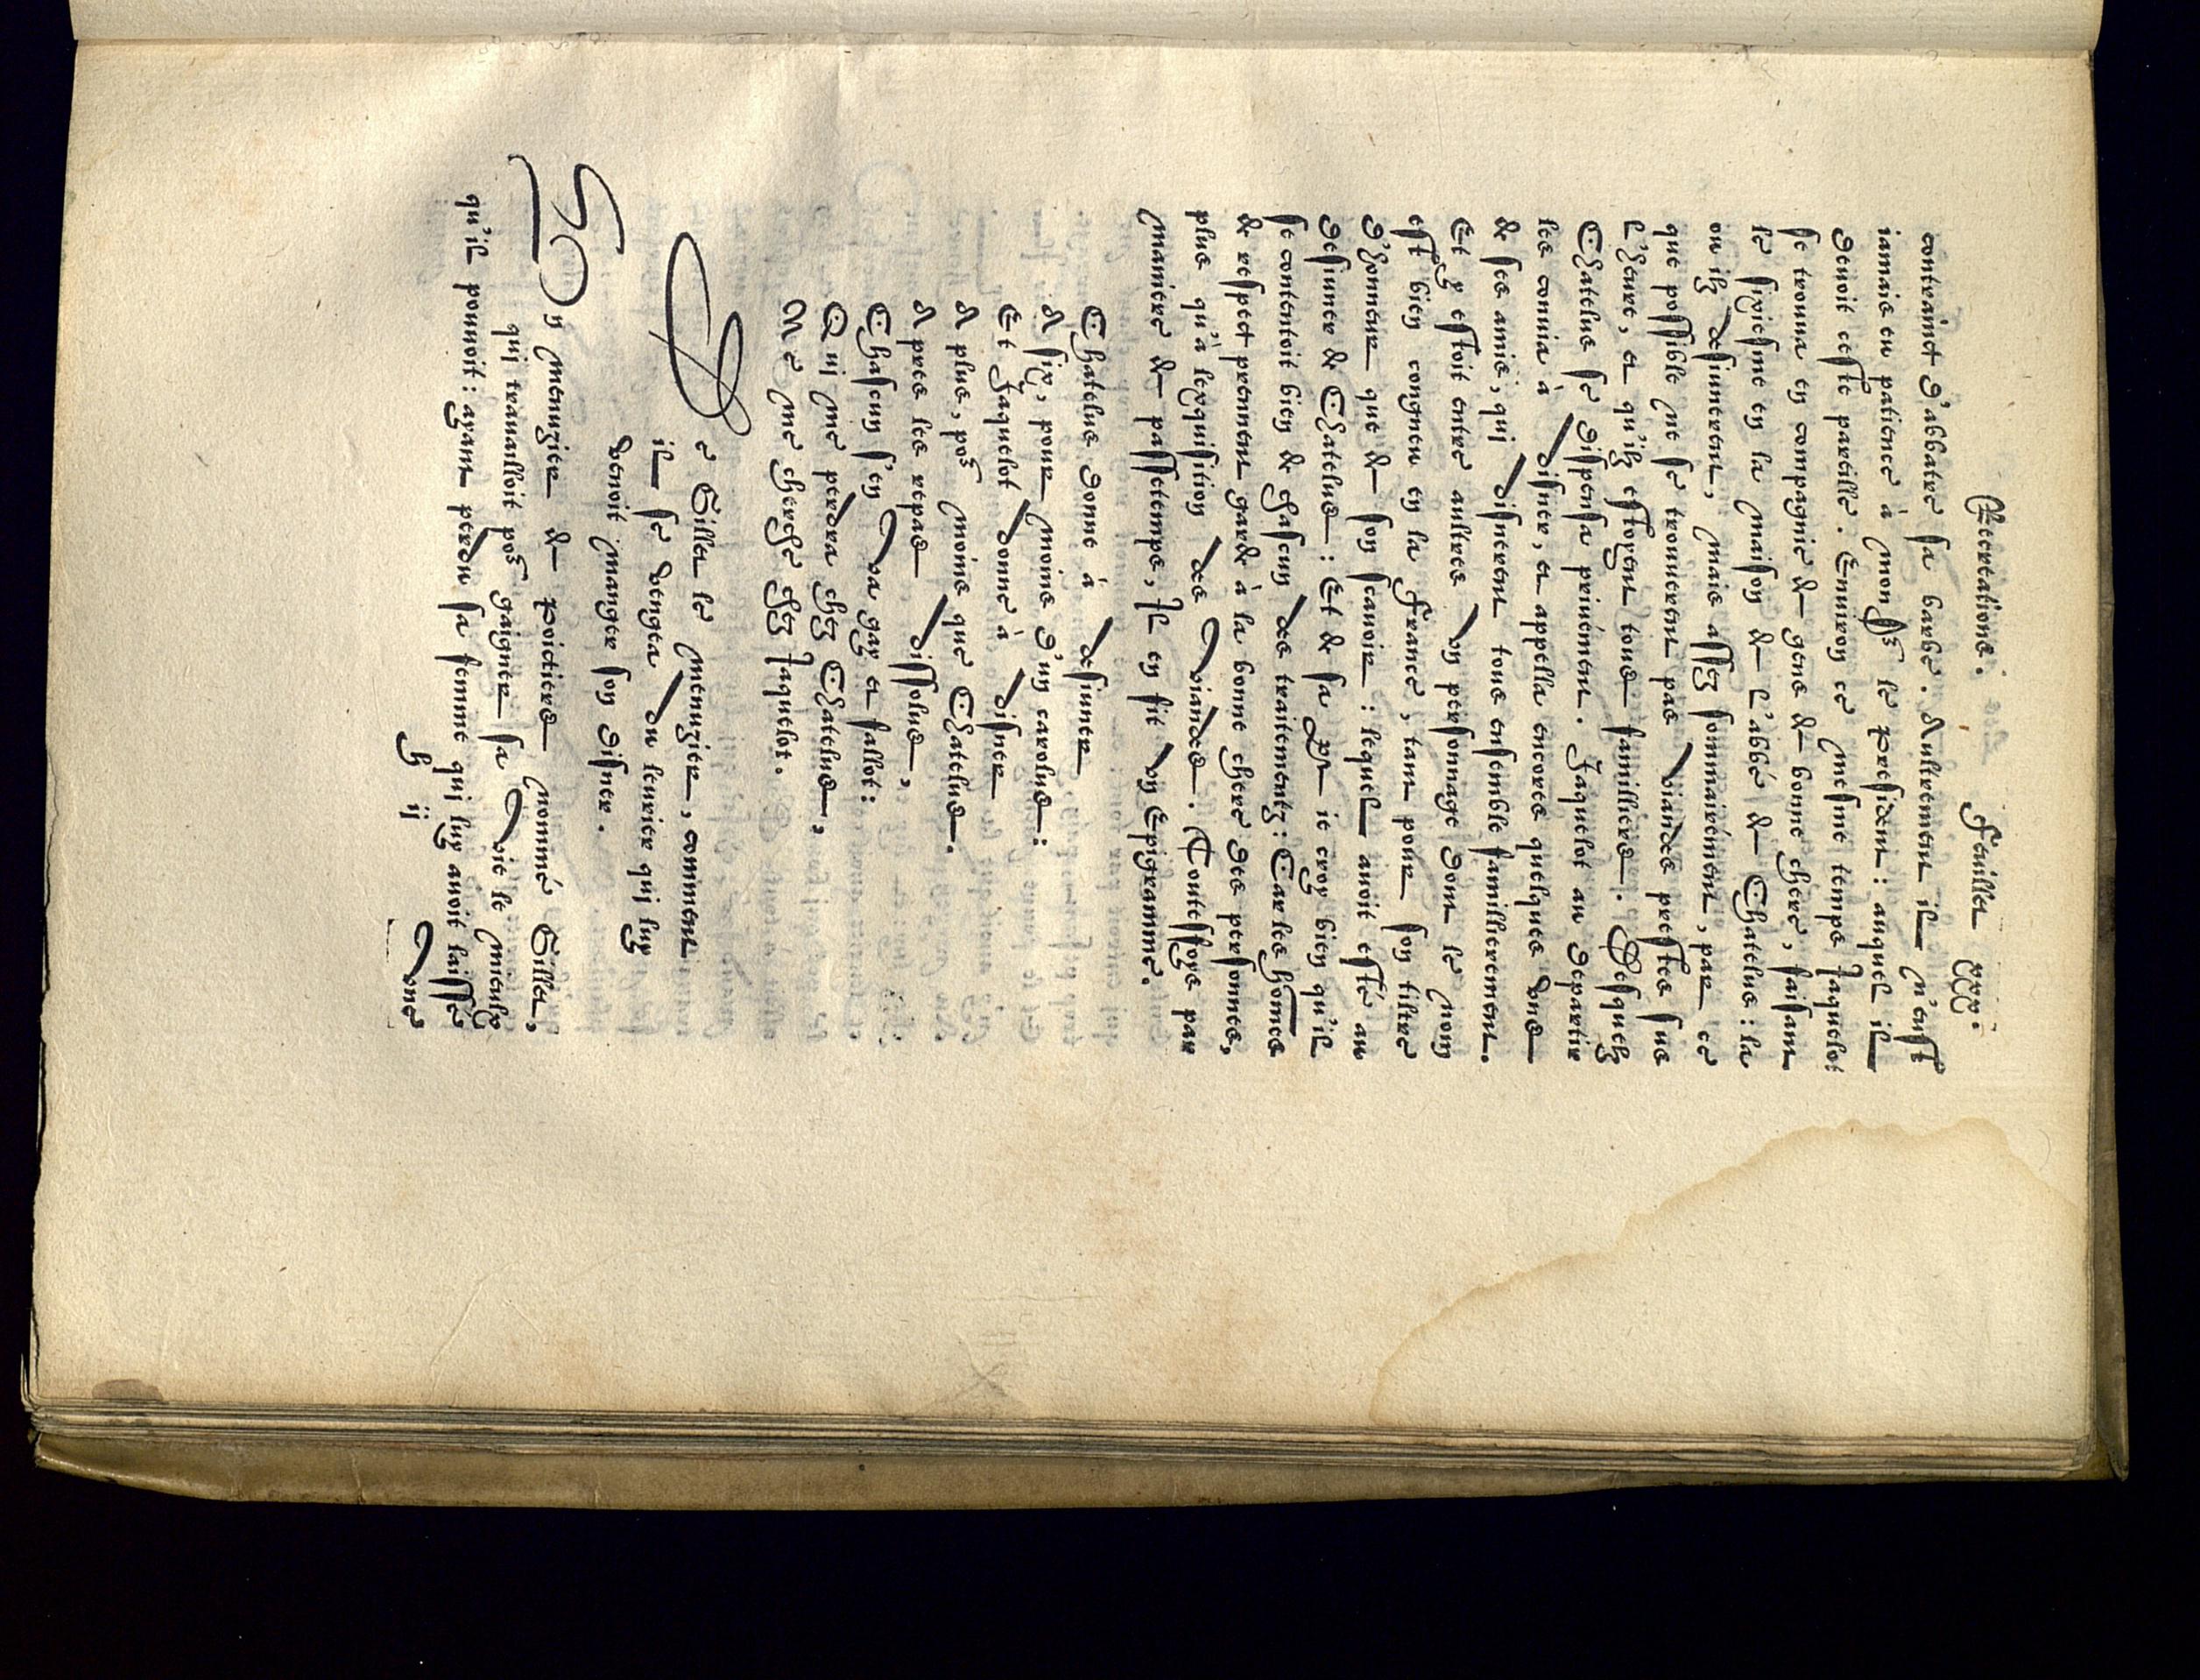 Recreations. Feuillet xxx.
contrainct d'abbatre sa barbe. Aultrement il n'eust
iamais eu patience à mon Sr le President: auquel il
deuoit ceste pareille. Enuiron ce mesme temps Jaquelot
se trouua en compagnie de gens de bonne chere, faisant
le sixiesme en la maison de l'abbé de Chatelus: la
ou ilz desiunerent, mais assez sommairement, par ce
que possible ne se trouuerent pas viandes prestes sus
l'heure, et qu'ilz estoyent tous familliers. Desquelz
Chatelus se dispensa priuément. Jaquelot au departir
les conuia à disner, et appella encores quelques vns
de ses amis, qui disnerent tous ensemble famillierement.
Et y estoit entre aultres vn personnage dont le nom
est bien congneu en la France, tant pour son tiltre
d'honneur que de son scauoir: lequel auoit esté au
desiuner de Chatelus: Et de sa part ie croy bien qu'il
se contentoit bien de chascun des traitementz: Car les hommes
de respect prennent garde à la bonne chere des personnes,
plus qu'à l'exquisition des viandes. Toutesfoys par
maniere de passetemps, Il en fit vn Epigramme.
Chatelus donne à desiuner
A six, pour moins d'un carolus:
Et Jaquelot donne à disner
A plus, por moins que Chatelus.
A pres les repas dissolus,
Chascun s'en va gay et fallot:
Qui me perdra chez Chatelus,
Ne me cherche chez Jaquelot.
De Gillet le menuzier, comment
il se vengea du leurier qui luy
venoit manger son disner.
Vn menuzier de Poictiers nommé Gillet,
qui trauailloit por gaigner sa vie le mieulx
qu'il pouuoit: ayant perdu sa femme qui luy auoit laissé
h ij
vne